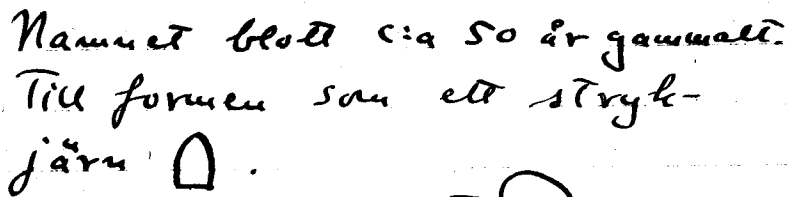 Namnet blott c:a 50 år gammalt.
Till formen som ett stryk-
järn .